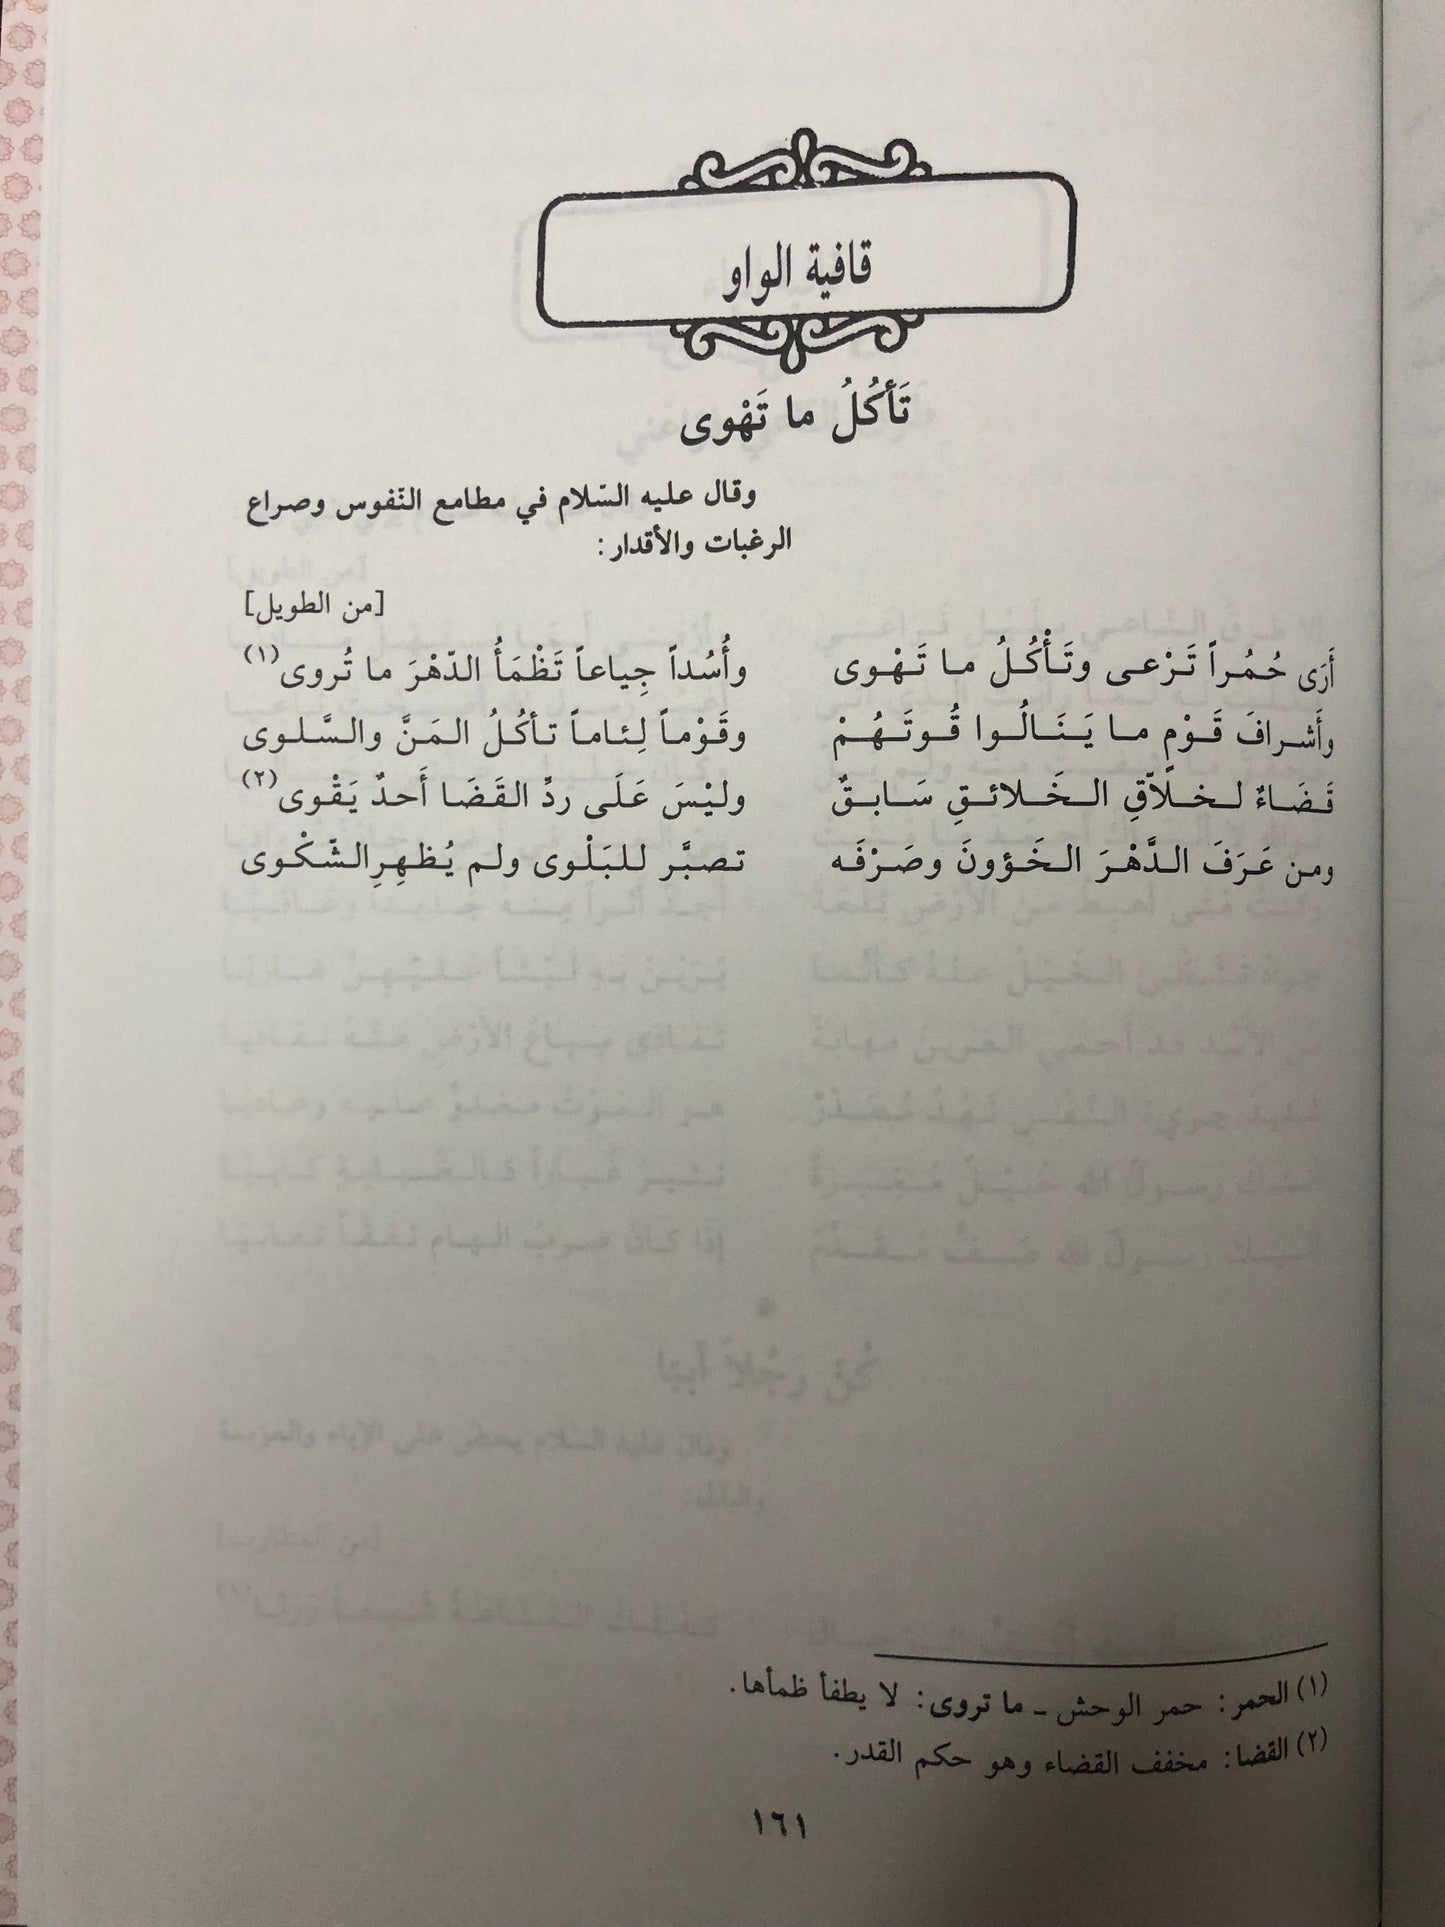 قافية الواو
تَأكُلُ ما تَهْوى
وقال عليه السّلام في مطامع النّفوس وصراع
الرغبات والأقدار:
[من الطويل]
أَرَى حُمُراً تَرْعى وتَأْكُلُ ما تَهْوى وأُسُداً جِياعاً تَظْمَأُ الدّهْرَ ما تُروى(١)
وأَشرافَ قَوْمٍ ما يَنَالُوا قُوتَهُمْ وقَوْماً لِئاماً تأكُلُ المَنَّ والسَّلوى
قَضَاءٌ لخلاّقِ الخَلائقِ سَابقٌ وليْسَ عَلَى ردِّ القَضَا أَحدٌ يَقْوى(٢)
ومن عَرَفَ الدَّهْرَ الخَؤونَ وصَرْفَه تصبَّر للبَلْوى ولم يُظهِرِ الشّكْوى
(١) الحمر: حمر الوحش ـ ما تروى: لا يطفأ ظمأها.
(٢) القضا: مخفف القضاء وهو حكم القدر.
١٦١